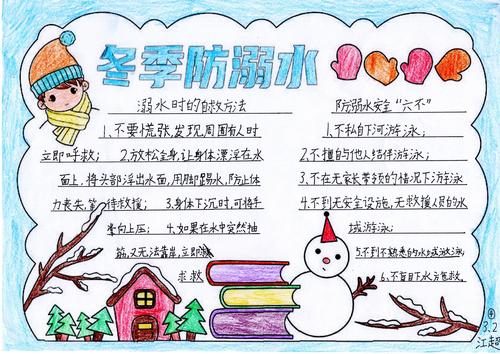 冬季防溺水
溺水时的自救方法
1、不要慌张,发现周围有人时
立即呼救; 2、放松全身,让身体漂浮在水
面上,将头部浮出水面,用脚踢水,防止体
力丧失,等待救援; 3、身体下沉时,可将手
掌向上压; 4、如果在水中突然抽
筋,又无法靠岸,立即
求救
防溺水安全“六不”
1、不私自下河游泳;
2、不擅自与他人结伴游泳
3、不在无家长带领的情况下游泳
4、不到无安全设施,无救援人员的水
域游泳;
5、不到不熟悉的水域游泳
6、不盲目下水施救.
④
3.2
江超